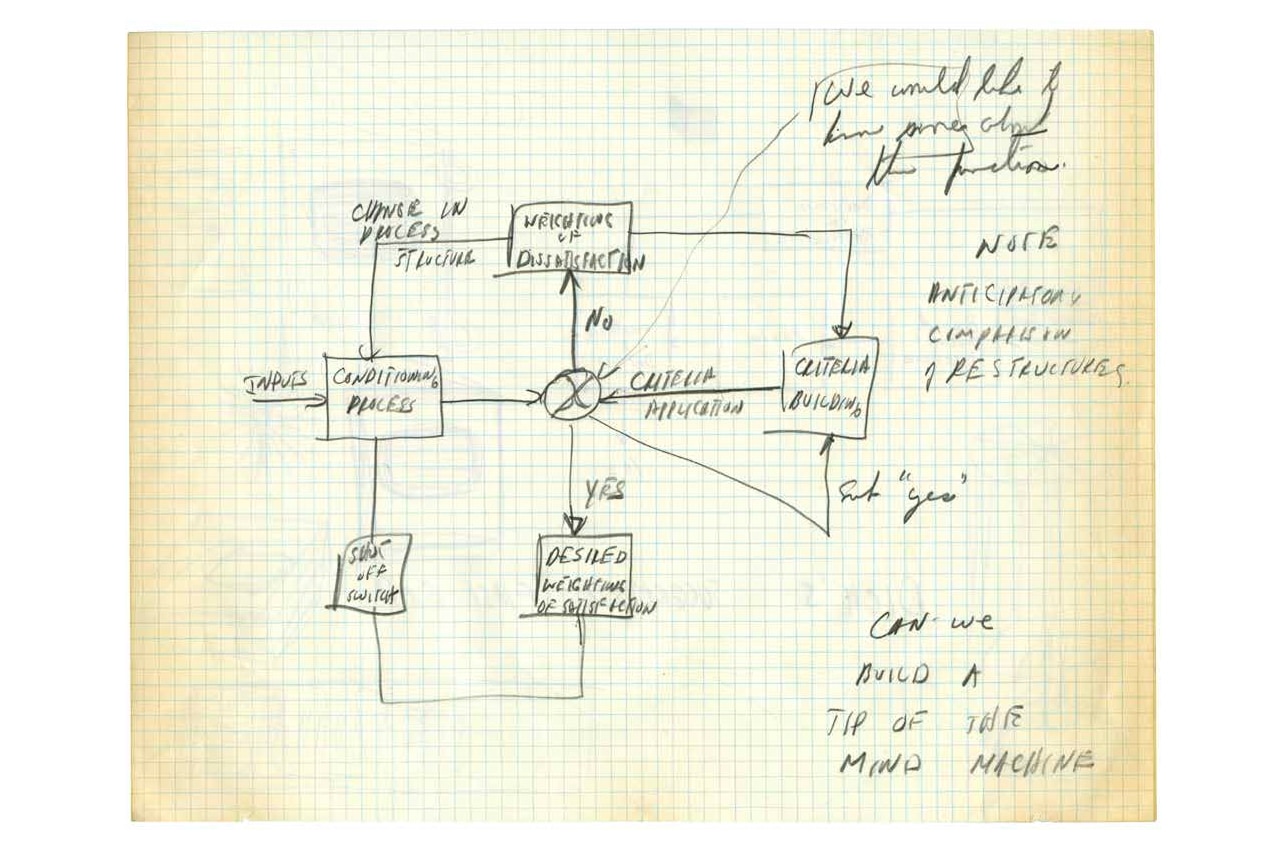 We would like to
know more about
this function.
CHANGE IN
PROCESS
STRUCTURE
WEIGHTING
OF
DISSATISFACTION
NOTE
ANTICIPATORY
COMPARISON
OF RESTRUCTURES
NO
INPUTS
CONDITIONING
PROCESS
CRITERIA
APPLICATION
CRITERIA
BUILDING
YES
but "yes"
SHUT
OFF
SWITCH
DESIRED
WEIGHTING
OF SATISFACTION
CAN WE
BUILD A
TIP OF THE
MIND MACHINE